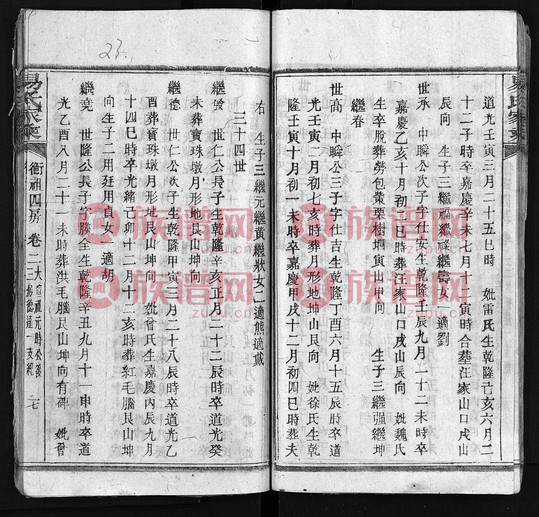 易氏家乘
道光壬寅三月二十五巳時 妣雷氏生乾隆己亥六月二
十二子時卒嘉慶辛未七月十 寅時合葬汪家山口戌山
辰向 生子三繼福繼祿繼壽 女一適劉
世承 中聯公次子字仕安生乾隆壬辰九月二十二未時卒
嘉慶乙亥十月初八日巳時葬汪家山口戌山辰向 妣魏氏
生卒脫葬勞包 栗樹坰寅山申向 生子三繼强繼坤
繼春
世高 中聯公三子字仕吉生乾隆丁酉六月十五辰時卒道
光壬寅二月初七亥時葬月形地坤山艮向 妣徐氏生乾
隆壬寅十一月初一未時卒嘉慶甲戌十二月初四巳時葬夫
右 生子三繼元繼黃繼狀女二適熊適戴
三十四世
繼發 世仁公長子生乾隆辛亥正月二十二辰時卒道光癸
未葬寶珠墩月形地艮山坤向
繼德 世仁公次子生乾隆甲寅 月二十八辰時卒道光乙
酉葬寶珠墩月形地艮山坤向 妣曾氏生嘉慶丙辰九月
十四巳時卒光緒己卯十二月十二亥時葬紅毛腦艮山坤
向 生子二用廷用貞女一適胡
繼堯 世隆公長子 勝全生乾隆辛丑九月十一申時卒道
光乙酉八月二十一未時葬洪毛腦艮山坤向有碑 妣曾
易氏家乘
衡祖四房 卷二
23